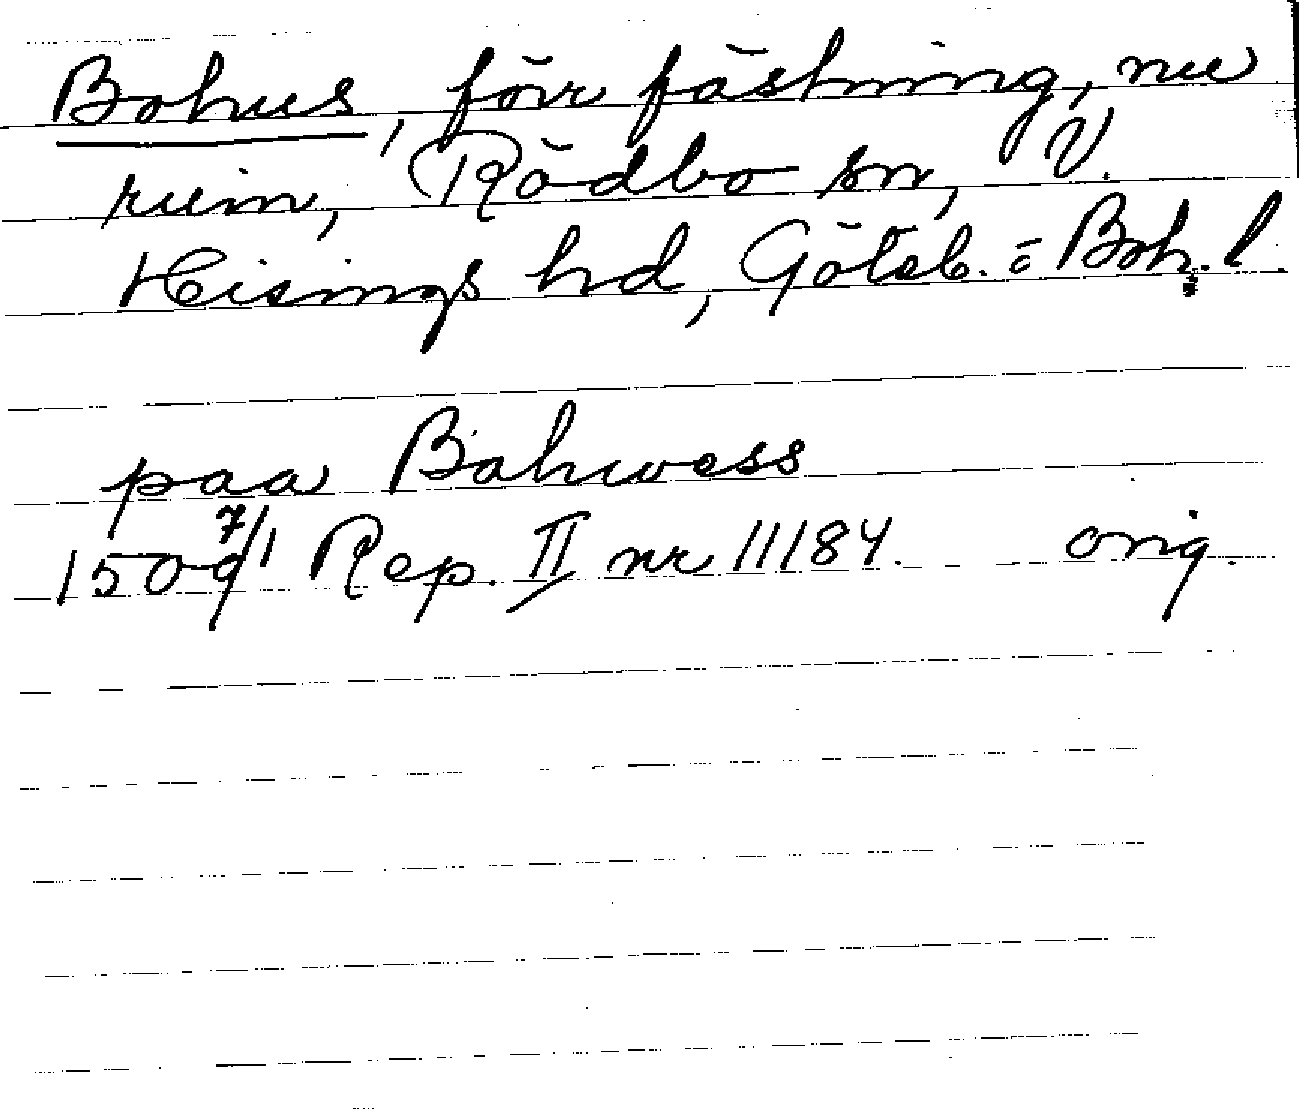 Bohus, förr fästning, nu
ruin, Rödbo sn, V.
Hisings hd, Göteb. o Boh. l.
paa Bahwess
1509 7/1 Rep. II nr 11184. orig.